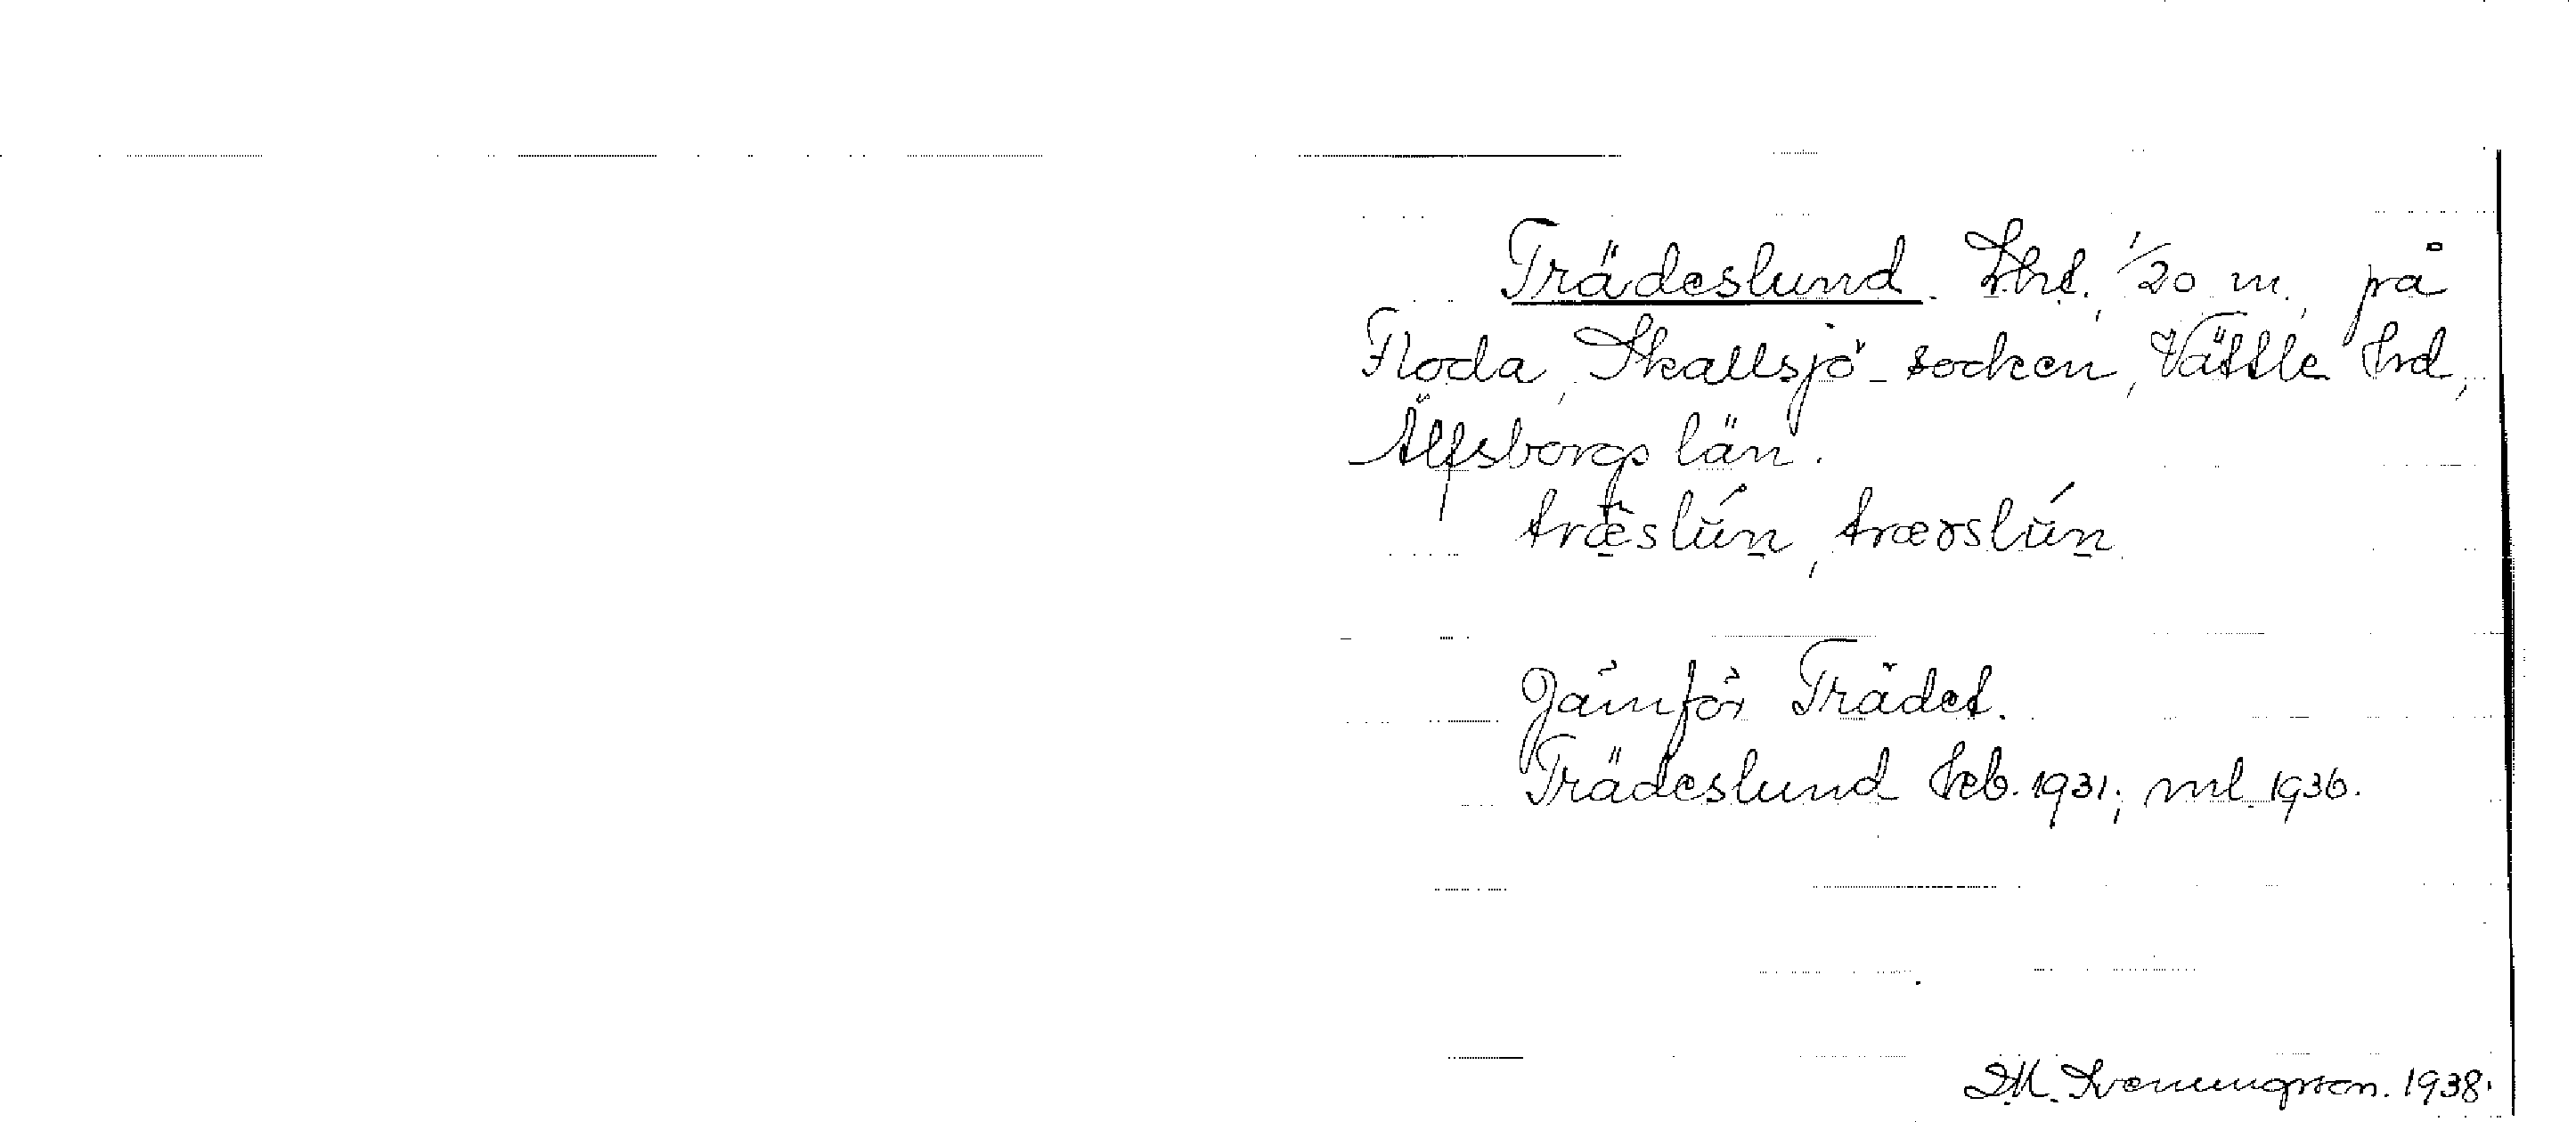 Trädeslund. Lht, 1/20 m, på
Floda, Skallsjö socken, Vättle hrd,
Älfsborgs län.
træslún, trærslún
Jämför Trädet.
Trädeslund heb. 1931; ml 1936.
1938.